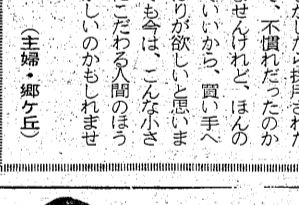 、不慣れだったのか
せんけれど、ほんの
いいから、買い手へ
りが欲しいと思いま
も今は、こんな小さ
こだわる人間のほう
しいのかもしれませ
（主婦・郷ケ丘）